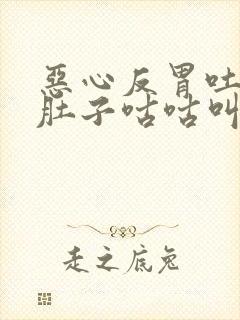 恶心反胃吐
肚子咕咕叫
走之底兔